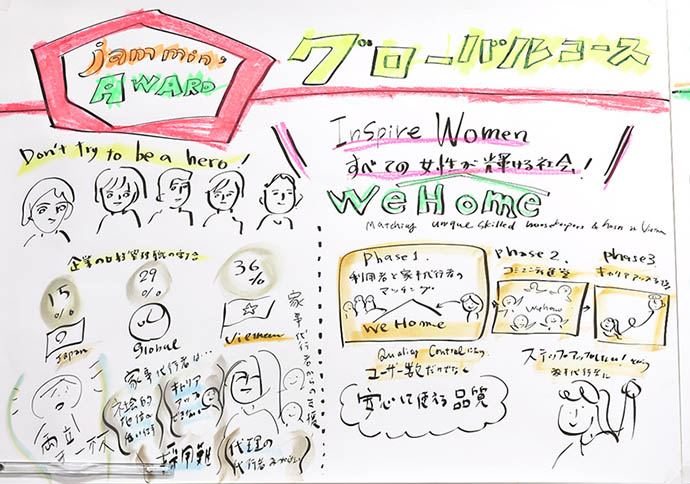 jammin'
AWARD
グローバルコース
Inspire Women
すべての女性が輝ける社会!
Don't try to be a hero!
WeHome
Matching unique skilled housekeepers & in Vietnam
企業の女性管理職の割合
15
%
Japan
29
%
Global
36
%
Vietnam
家事代行者は…
社会的
地位が
低い仕事
キャリア
アップ
採用難
両立 杯
家事代行者から支援
代理の
代行者
Phase 1.
利用者と家事代行者の
マッチング
WeHome
Phase 2.
コミュニティ運営
WeHome
Phase 3.
キャリアアップ支援
Quality Control
ユーザー数だけでなく
安心して使える品質
ステップアップしたい!
家事代行者に